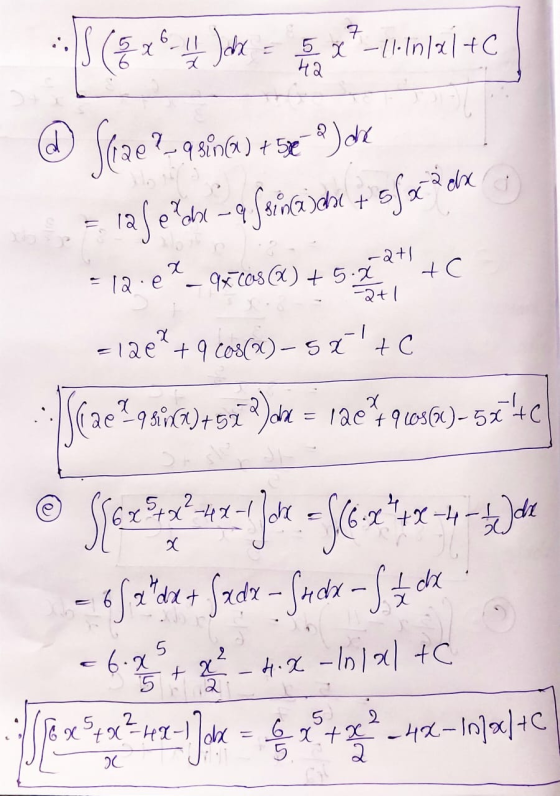 ∴ ∫(5/6 x^6 - 11/x)dx = 5/42 x^7 - 11·ln|x| + C
(d) ∫(12e^x - 9sin(x) + 5x^-2)dx
= 12∫e^x dx - 9∫sin(x)dx + 5∫x^-2 dx
= 12·e^x - 9x-cos(x) + 5·x^(-2+1)/(-2+1) + C
= 12e^x + 9cos(x) - 5x^-1 + C
∴ ∫(12e^x - 9sin(x) + 5x^-2)dx = 12e^x + 9cos(x) - 5x^-1 + C
(e) ∫[(6x^5 + x^2 - 4x - 1)/x]dx = ∫(6·x^4 + x - 4 - 1/x)dx
= 6∫x^4 dx + ∫xdx - ∫4dx - ∫1/x dx
= 6·x^5/5 + x^2/2 - 4·x - ln|x| + C
∴ ∫[(6x^5 + x^2 - 4x - 1)/x]dx = 6/5 x^5 + x^2/2 - 4x - ln|x| + C